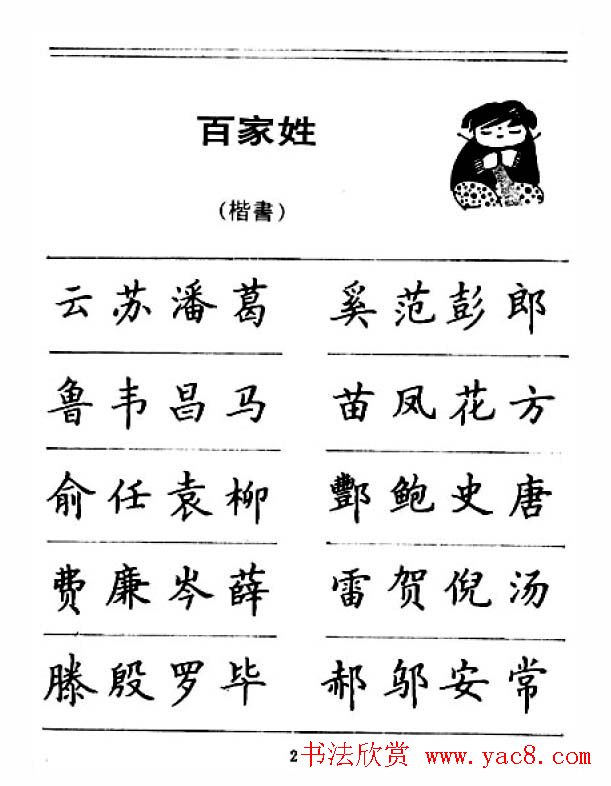 百家姓
(楷書)
云苏潘葛 奚范彭郎
鲁韦昌马 苗凤花方
俞任袁柳 酆鲍史唐
费廉岑薛 雷贺倪汤
滕殷罗毕 郝邬安常
2 书法欣赏 www.yac8.com